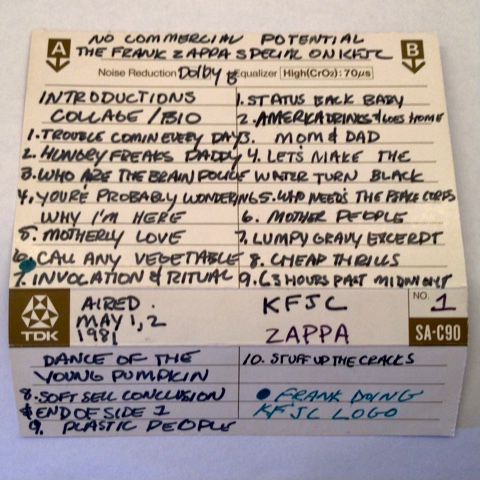 NO COMMERCIAL POTENTIAL
THE FRANK ZAPPA SPECIAL ON KFJC
A
B
Noise Reduction Dolby B Equalizer High(CrO2):70µs
INTRODUCTIONS
COLLAGE/BIO
1. TROUBLE COMIN EVERY DAY
2. HUNGRY FREAKS DADDY
3. WHO ARE THE BRAIN POLICE
4. YOU'RE PROBABLY WONDERING
WHY I'M HERE
5. MOTHERLY LOVE
6. CALL ANY VEGETABLE
7. INVOCATION & RITUAL
1. STATUS BACK BABY
2. AMERICA DRINKS & GOES HOME
3. MOM & DAD
4. LETS MAKE THE
WATER TURN BLACK
5. WHO NEEDS THE PEACE CORPS
6. MOTHER PEOPLE
7. LUMPY GRAVY EXCERPT
8. CHEAP THRILLS
9. 63 HOURS PAST MIDNIGHT
TDK
AIRED.
MAY 1, 2
1981
KFJC
ZAPPA
NO. 1
SA-C90
DANCE OF THE
YOUNG PUMPKIN
8. SOFT SELL CONCLUSION
& END OF SIDE 1
9. PLASTIC PEOPLE
10. STUFF UP THE CRACKS
FRANK DOING
KFJC LOGO